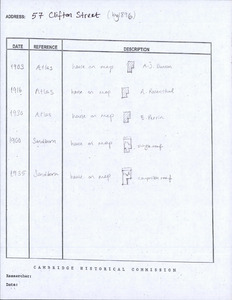 ADDRESS: 57 Clifton Street (by 1896)
DATE REFERENCE DESCRIPTION
1903 Atlas house on map A.J.
1916 Atlas house on map
1930 Atlas house on map
1900 Sanborn house on map roof
1935 Sanborn house on map composition roof
CAMBRIDGE HISTORICAL COMMISSION
Researcher:
Date: